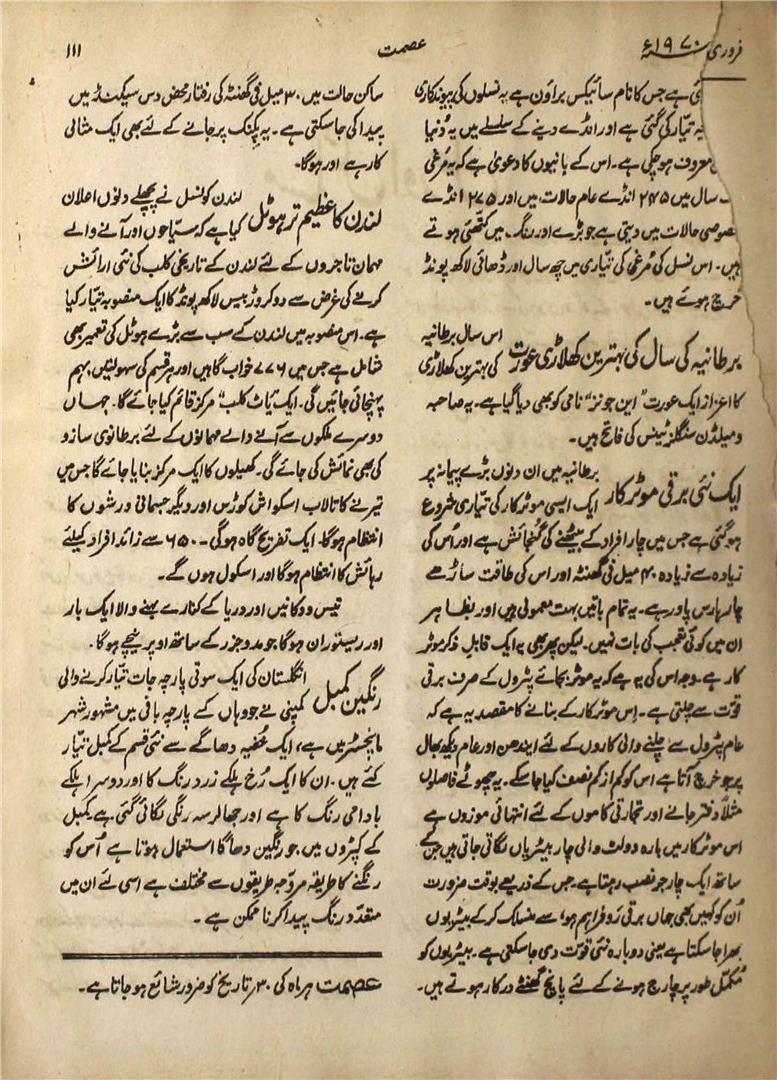 فروری سنہ ۱۹۷۰ء
عصمت
۱۱۱
ئی ہے جس کا نام سائیکس براؤن ہے یہ نسلوں کی پیوندکاری
یہ تیار کی گئی ہے اور انڈے دینے کے سلسلے میں یہ دُنیا
معروف ہوچکی ہے۔ اس کے بانیوں کا دعویٰ ہے کہ یہ مُرغی
سال میں ۲۴۵ انڈے عام حالات میں اور ۲۷۵ انڈے
خصوصی حالات میں دیتی ہے جو بڑے اور رنگ میں کتھئی ہوتے
ہیں۔ اس نسل کی مُرغی کی تیاری میں چھ سال اور ڈھائی لاکھ پونڈ
خرچ ہوئے ہیں۔
برطانیہ کی سال کی بہترین کھلاڑی عورت
اس سال برطانیہ
کی بہترین کھلاڑی
کا اعزاز ایک عورت "این جونز" نامی کو بھی دیا گیا ہے۔ یہ صاحبہ
ومبلڈن سنگلز ٹینس کی فاتح ہیں۔
ایک نئی برقی موٹرکار
برطانیہ میں ان دنوں بڑے پیمانہ پر
ایک ایسی موٹرکار کی تیاری شروع
ہوگئی ہے جس میں چار افراد کے بیٹھنے کی گنجائش ہے اور اُس کی
زیادہ سے زیادہ ۴۰ میل فی گھنٹہ اور اس کی طاقت ساڑھے
چار ہارس پاور ہے۔ یہ تمام باتیں بہت معمولی ہیں اور بظاہر
ان میں کوئی تعجب کی بات نہیں۔ لیکن پھر بھی یہ ایک قابلِ ذکر موٹر
کار ہے۔ وجہ اس کی یہ ہے کہ یہ موٹر بجائے پٹرول کے صرف برقی
قوّت سے چلتی ہے۔ اس موٹرکار کے بنانے کا مقصد یہ ہے کہ
عام پٹرول سے چلنے والی کاروں کے لئے ایندھن اور عام دیکھ بھال
پر جو خرچ آتا ہے اس کو کم از کم نصف کیا جاسکے۔ یہ چھوٹے فاصلوں
مثلاً دفتر جانے اور تجارتی کاموں کے لئے انتہائی موزوں ہے
اس موٹرکار میں بارہ دولٹ والی چار بیٹریاں لگائی جاتی ہیں جن کے
ساتھ ایک چارجر نصب رہتا ہے۔ جس کے ذریعے بوقت ضرورت
اُن کو کہیں بھی جہاں برقی رَو فراہم ہو، اسے منسلک کرکے بیٹریوں
بھرا جا سکتا ہے یعنی دوبارہ نئی قوّت دی جاسکتی ہے۔ بیٹریوں کو
مُکمّل طور پر چارج ہونے کے لئے پانچ گھنٹے درکار ہوتے ہیں۔
ساکن حالت میں ۳۰ میل فی گھنٹہ کی رفتار محض دس سیکنڈ میں
پیدا کی جاسکتی ہے۔ یہ پکنک پر جانے کے لئے بھی ایک مثالی
کار ہے اور ہوگا۔
لندن کا عظیم تر ہوٹل
لندن کونسل نے پچھلے دنوں اعلان
کیا ہے کہ سیّاحوں اور آنے والے
مہمان تاجروں کے لئے لندن کے تاریخی کلب کی نئی ارائش
کرنے کی غرض سے دو کروڑ بیس لاکھ پونڈ کا ایک منصوبہ تیّار کیا
ہے۔ اس منصوبہ میں لندن کے سب سے بڑے ہوٹل کی تعمیر بھی
شامل ہے جس میں ۷۷۶ خواب گاہیں اور ہر قسم کی سہولتیں بہم
پہنچائی جائیں گی۔ ایک "یاٹ کلب" مرکز قائم کیا جائے گا۔ جہاں
دوسرے ملکوں سے آنے والے مہمانوں کے لئے برطانوی سازو
کی بھی نمائش کی جائے گی۔ کھیلوں کا ایک مرکز بنایا جائے گا جس میں
تیرنے کا تالاب اسکواش کورٹس اور دیگر جسمانی ورزشوں کا
انتظام ہوگا۔ ایک تفریح گاہ ہوگی۔ ۶۵۰ سے زائد افراد کیلئے
رہائش کا انتظام ہوگا اور اسکول ہوں گے۔
تیس دوکانیں اور دریا کے کنارے بہنے والا ایک بار
اور ریستوران ہوگا جو مدوجزر کے ساتھ اوپر نیچے ہوگا۔
رنگین کمبل
انگلستان کی ایک سوتی پارچہ جات تیّار کرنے والی
کمپنی نے جو وہاں کے پارچہ بافی میں مشہور شہر
مانچسٹر میں ہے، ایک مخفیہ دھاگے سے نئی قسم کے کمبل تیار
کئے ہیں۔ ان کا ایک رُخ ہلکے زرد رنگ کا اور دوسرا ہلکے
بادامی رنگ کا ہے اور جھالر سہ رنگی لگائی گئی ہے کمبل
کے کپڑوں میں جو رنگین دھاگا استعمال ہوتا ہے اُس کو
رنگنے کا طریقہ مروّجہ طریقوں سے مختلف ہے اسی لئے ان میں
متعدّد رنگ پیدا کرنا ممکن ہے۔
عصمت ہر ماہ کی ۳۰ تاریخ کو ضرور شائع ہو جاتا ہے۔